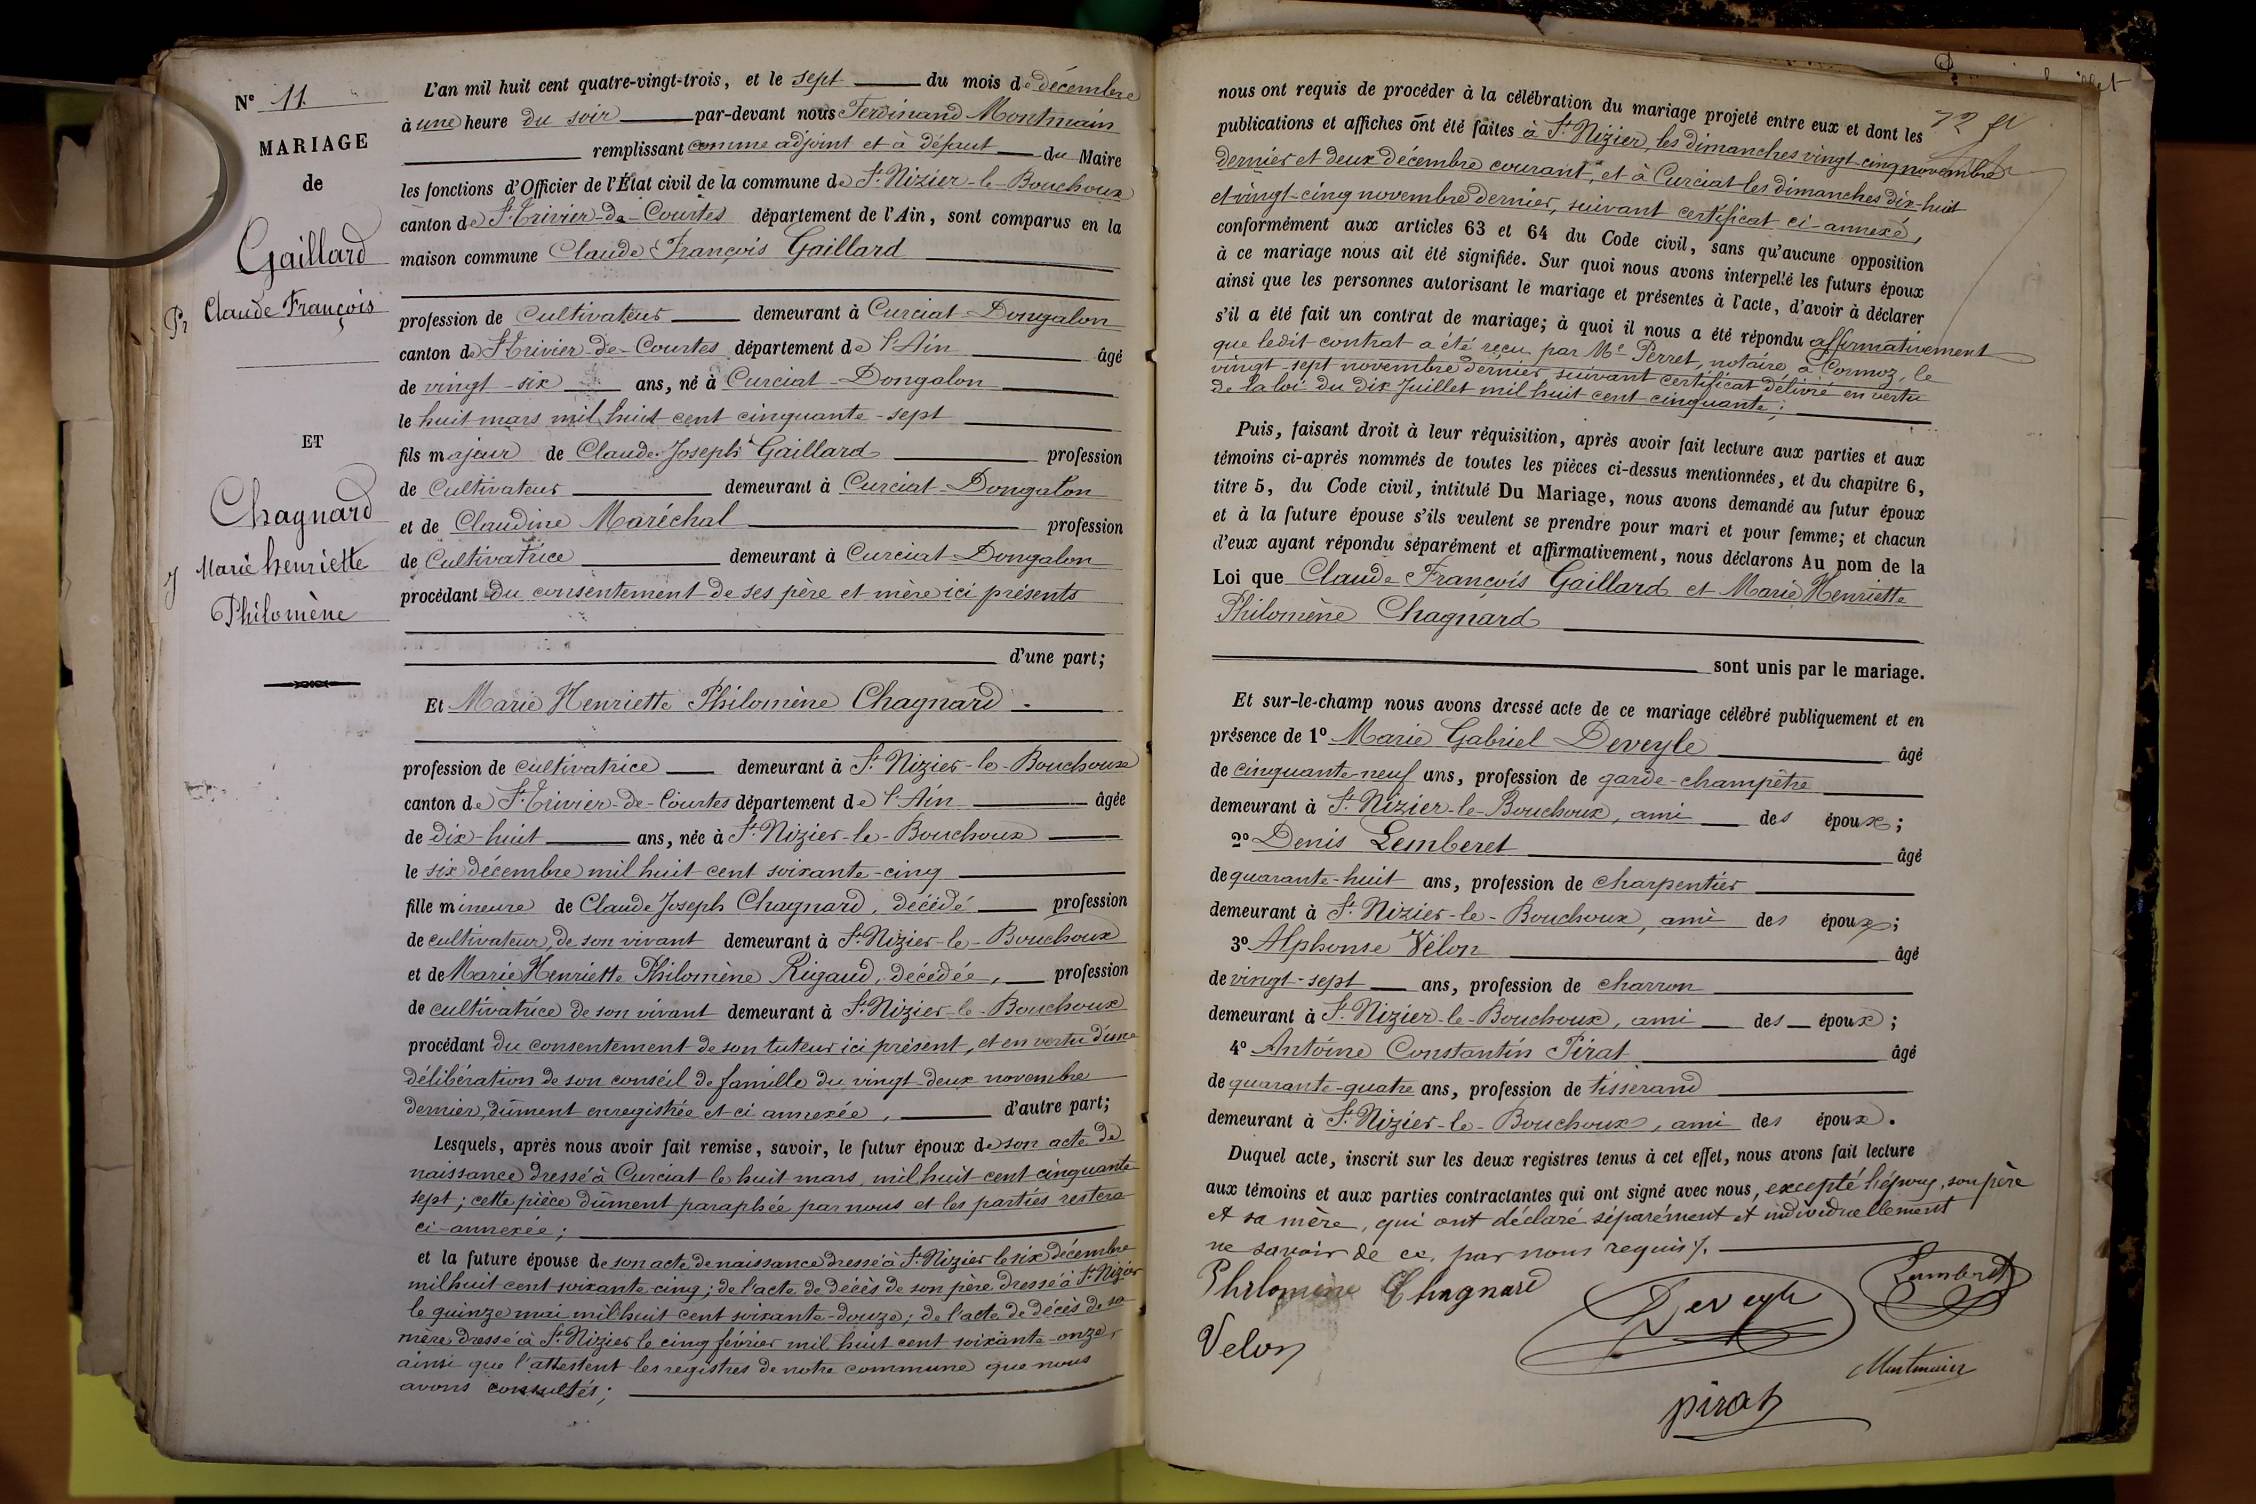 N° 11
MARIAGE
de
Gaillard
Claude François
ET
Chagnard
Marie henriette
Philomène
L'an mil huit cent quatre-vingt-trois, et le sept du mois de décembre
à une heure du soir par-devant nous Ferdinand Montmain
remplissant comme adjoint et à défaut du Maire
les fonctions d'Officier de l'État civil de la commune de St Nizier-le-Bouchoux
canton de St Trivier-de-Courtes département de l'Ain, sont comparus en la
maison commune Claude François Gaillard
profession de cultivateur demeurant à Curciat-Dongalon
canton de St Trivier-de-Courtes département de l'Ain âgé
de vingt-six ans, né à Curciat-Dongalon
le huit mars mil huit cent cinquante-sept
fils majeur de Claude Joseph Gaillard profession
de cultivateur demeurant à Curciat-Dongalon
et de Claudine Maréchal profession
de Cultivatrice demeurant à Curciat-Dongalon
procédant du consentement de ses père et mère ici présents
d'une part;
Et Marie Henriette Philomène Chagnard.
profession de cultivatrice demeurant à St Nizier-le-Bouchoux
canton de St Trivier-de-Courtes département de l'Ain âgée
de dix-huit ans, née à St Nizier-le-Bouchoux
le six décembre mil huit cent soixante-cinq
fille mineure de Claude Joseph Chagnard, décédé profession
de cultivateur, de son vivant demeurant à St Nizier-le-Bouchoux
et de Marie Henriette Philomène Rigaud, décédée, profession
de cultivatrice de son vivant demeurant à St Nizier-le-Bouchoux
procédant du consentement de son tuteur ici présent, et en vertu d'une
délibération de son conseil de famille du vingt-deux novembre
dernier, dûment enregistrée et ci annexée, d'autre part;
Lesquels, après nous avoir fait remise, savoir, le futur époux de son acte de
naissance dressé à Curciat le huit mars mil huit cent cinquante
sept; cette pièce dûment paraphée par nous et les parties restera
ci-annexée;
et la future épouse de son acte de naissance dressé à St Nizier le six décembre
mil huit cent soixante-cinq; de l'acte de décès de son père dressé à St Nizier
le quinze mai mil huit cent soixante-douze; de l'acte de décès de sa
mère dressé à St Nizier le cinq février mil huit cent soixante-onze,
ainsi que l'attestent les registres de notre commune que nous
avons consultés;
nous ont requis de procéder à la célébration du mariage projeté entre eux et dont les
publications et affiches ont été faites à St Nizier, les dimanches vingt-cinq novembre
dernier et deux décembre courant, et à Curciat les dimanches dix-huit
et vingt-cinq novembre dernier, suivant certificat ci-annexé,
conformément aux articles 63 et 64 du Code civil, sans qu'aucune opposition
à ce mariage nous ait été signifiée. Sur quoi nous avons interpellé les futurs époux
ainsi que les personnes autorisant le mariage et présentes à l'acte, d'avoir à déclarer
s'il a été fait un contrat de mariage; à quoi il nous a été répondu affirmativement
que ledit contrat a été reçu par Me Perret, notaire, à Cormoz, le
vingt-sept novembre dernier suivant certificat délivré en vertu
de la loi du dix Juillet mil huit cent cinquante;
Puis, faisant droit à leur réquisition, après avoir fait lecture aux parties et aux
témoins ci-après nommés de toutes les pièces ci-dessus mentionnées, et du chapitre 6,
titre 5, du Code civil, intitulé Du Mariage, nous avons demandé au futur époux
et à la future épouse s'ils veulent se prendre pour mari et pour femme; et chacun
d'eux ayant répondu séparément et affirmativement, nous déclarons Au nom de la
Loi que Claude François Gaillard et Marie Henriette
Philomène Chagnard
sont unis par le mariage.
Et sur-le-champ nous avons dressé acte de ce mariage célébré publiquement et en
présence de 1° Marie Gabriel Deveyle âgé
de cinquante-neuf ans, profession de garde-champêtre
demeurant à St Nizier-le-Bouchoux, ami des époux;
2° Denis Lemberet âgé
de quarante-huit ans, profession de charpentier
demeurant à St Nizier-le-Bouchoux, ami des époux;
3° Alphonse Vélon âgé
de vingt-sept ans, profession de charron
demeurant à St Nizier-le-Bouchoux, ami des époux;
4° Antoine Constantin Pirat âgé
de quarante-quatre ans, profession de tisserand
demeurant à St Nizier-le-Bouchoux, ami des époux.
Duquel acte, inscrit sur les deux registres tenus à cet effet, nous avons fait lecture
aux témoins et aux parties contractantes qui ont signé avec nous, excepté l'époux, son père
et sa mère, qui ont déclaré séparément et individuellement
ne savoir de ce, par nous requis
Philomène Chagnard
Deveyle
Lemberet
Velon
Montmain
pirat